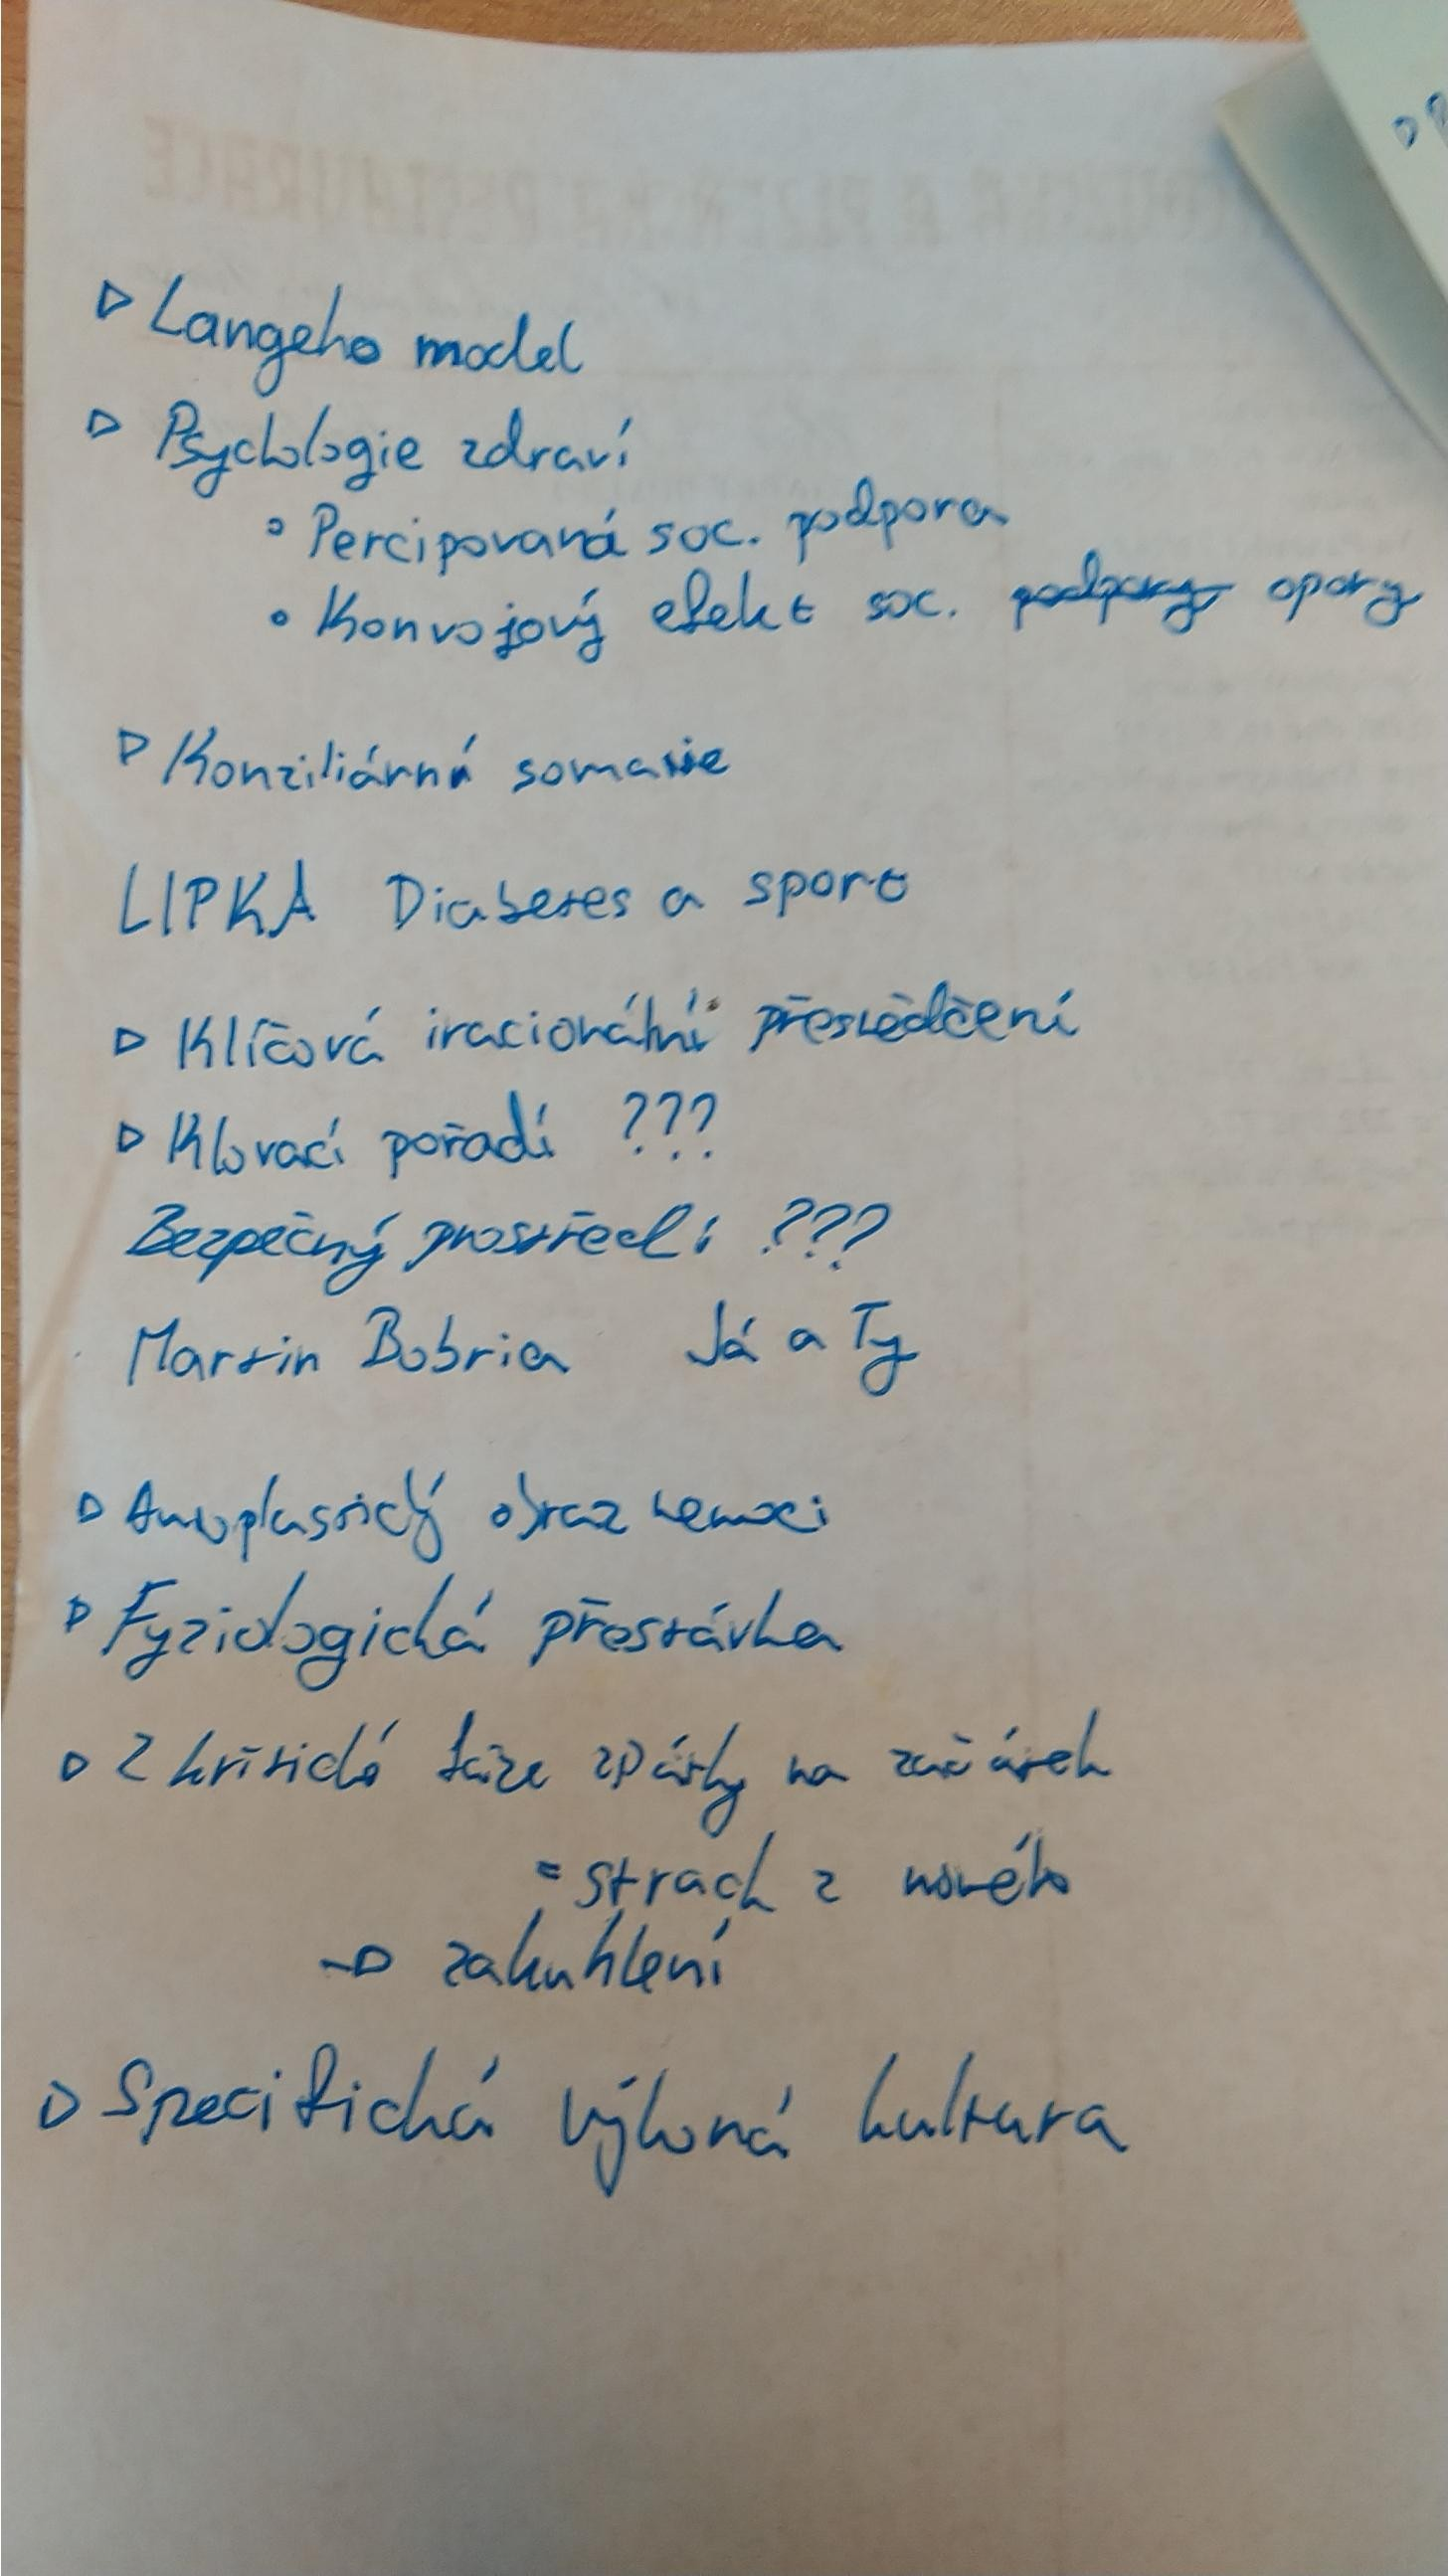 Langeho model
Psychologie zdraví
Percipovaná soc. podpora
Konvojový efekt soc. podpory opory
Konziliární somatie
LIPKA Diabetes a sport
Klíčová iracionální přesvědčení
Klovací pořadí ???
Bezpečný prostředí ???
Martin Bobria Já a Ty
Autoplastický obraz nemoci
Fyziologická přestávka
Z kritické fáze zpátky na začátek
= strach z nového
zakuklení
Specifická výkoná kultura